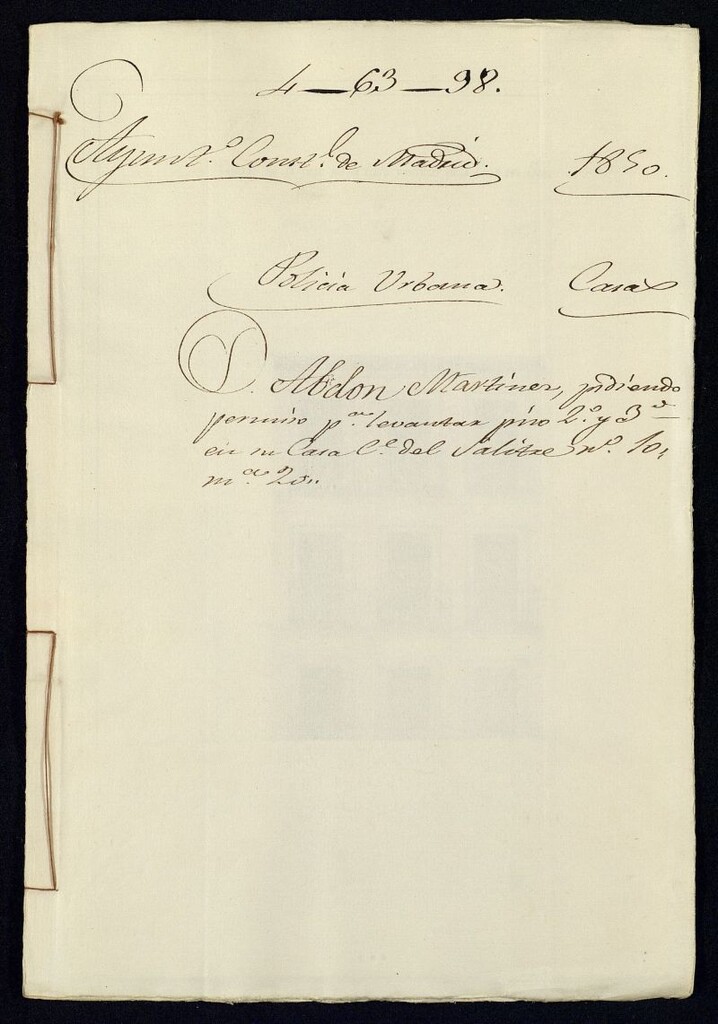 4—63—98.
Ayunt.º Const.l de Madrid. 1850.
Policia Urbana. Casas
D. Abdon Martinez, pidiendo
permiso p.ª levantar piso 2.º y 3.º
en su Casa C.e del Salitre n.º 10,
m.ª